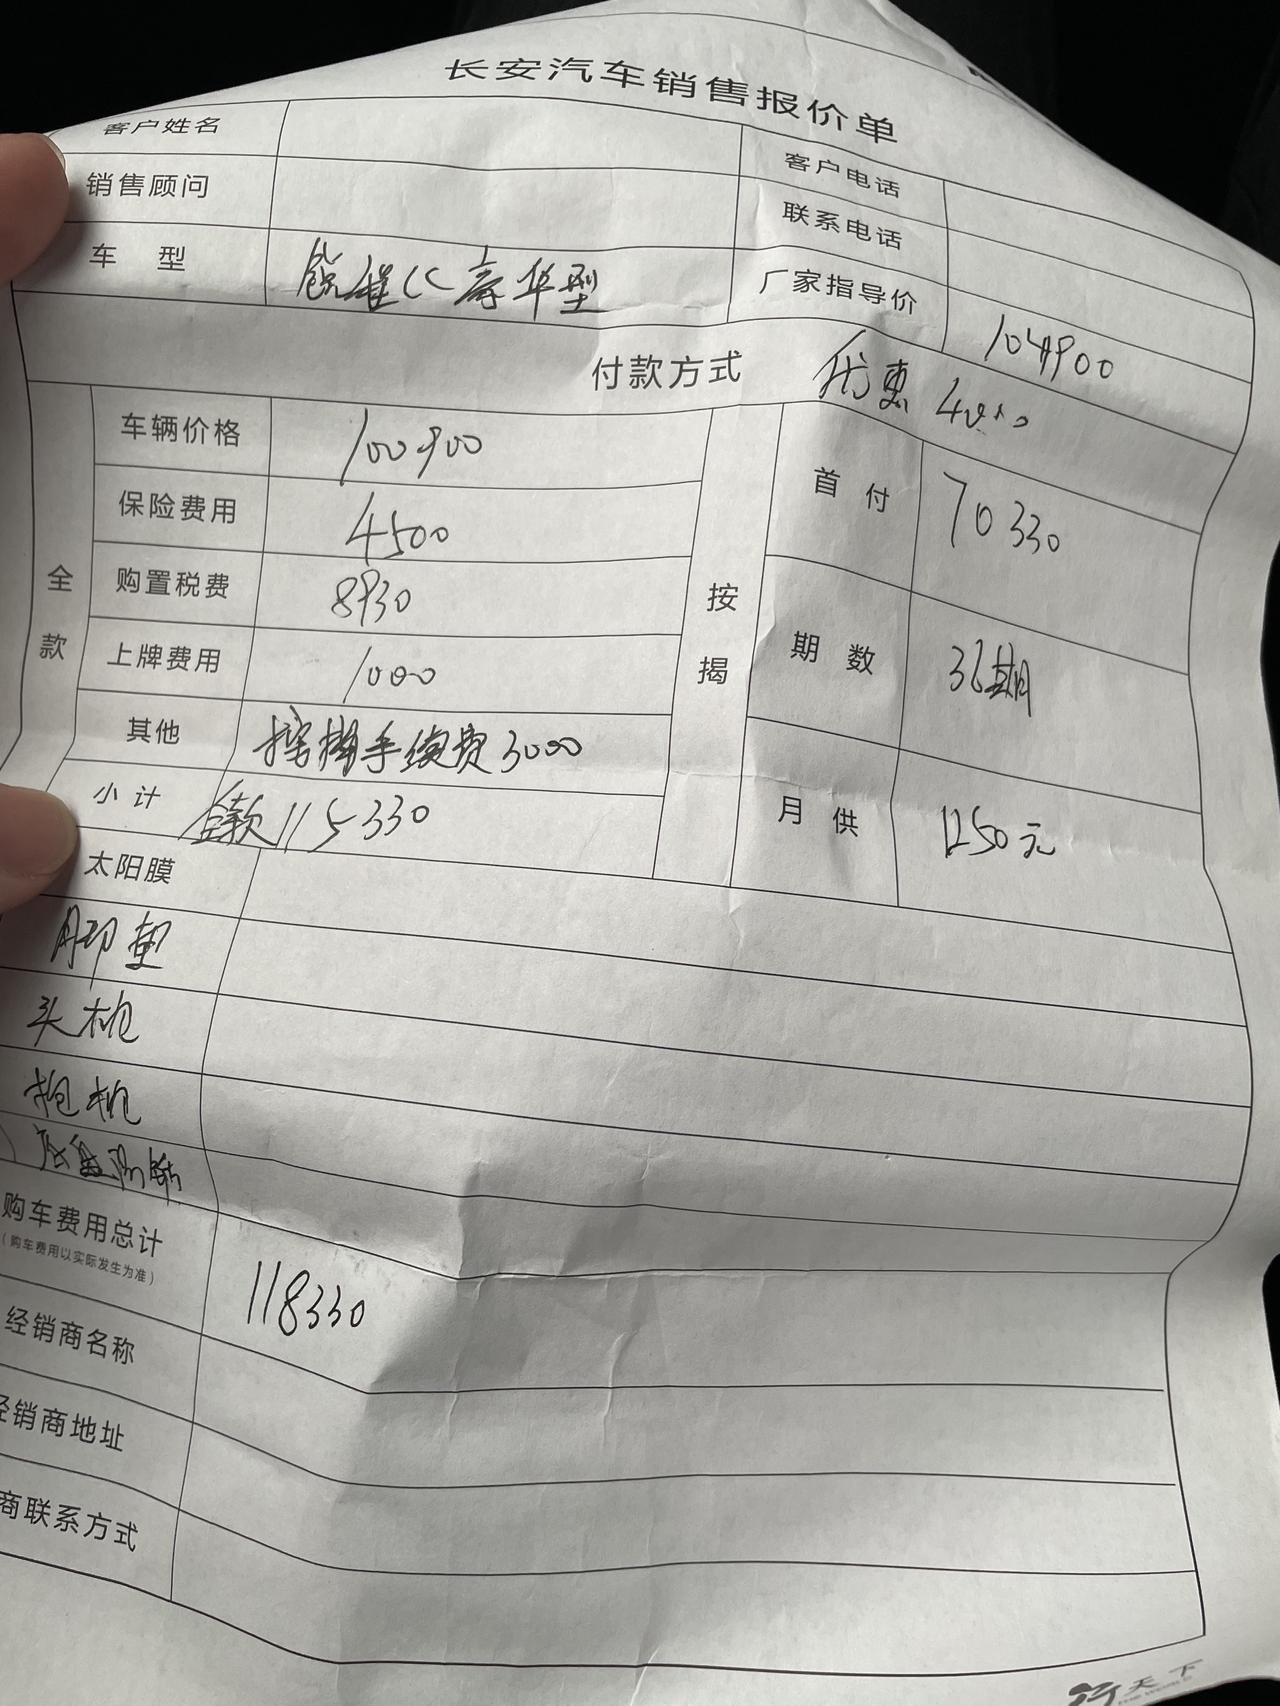 长安汽车销售报价单
客户姓名
客户电话
销售顾问
联系电话
车 型 锐程CC豪华型
厂家指导价 104900
付款方式 优惠 4000
全款
车辆价格 100900
保险费用 4500
购置税费 8930
上牌费用 1000
其他 按揭手续费3000
小计 全款115330
按揭
首付 70330
期数 36期
月供 1250元
太阳膜
脚垫
头枕
抱枕
购车费用总计 118330
(购车费用以实际发生为准)
经销商名称
经销商地址
商联系方式
行天下